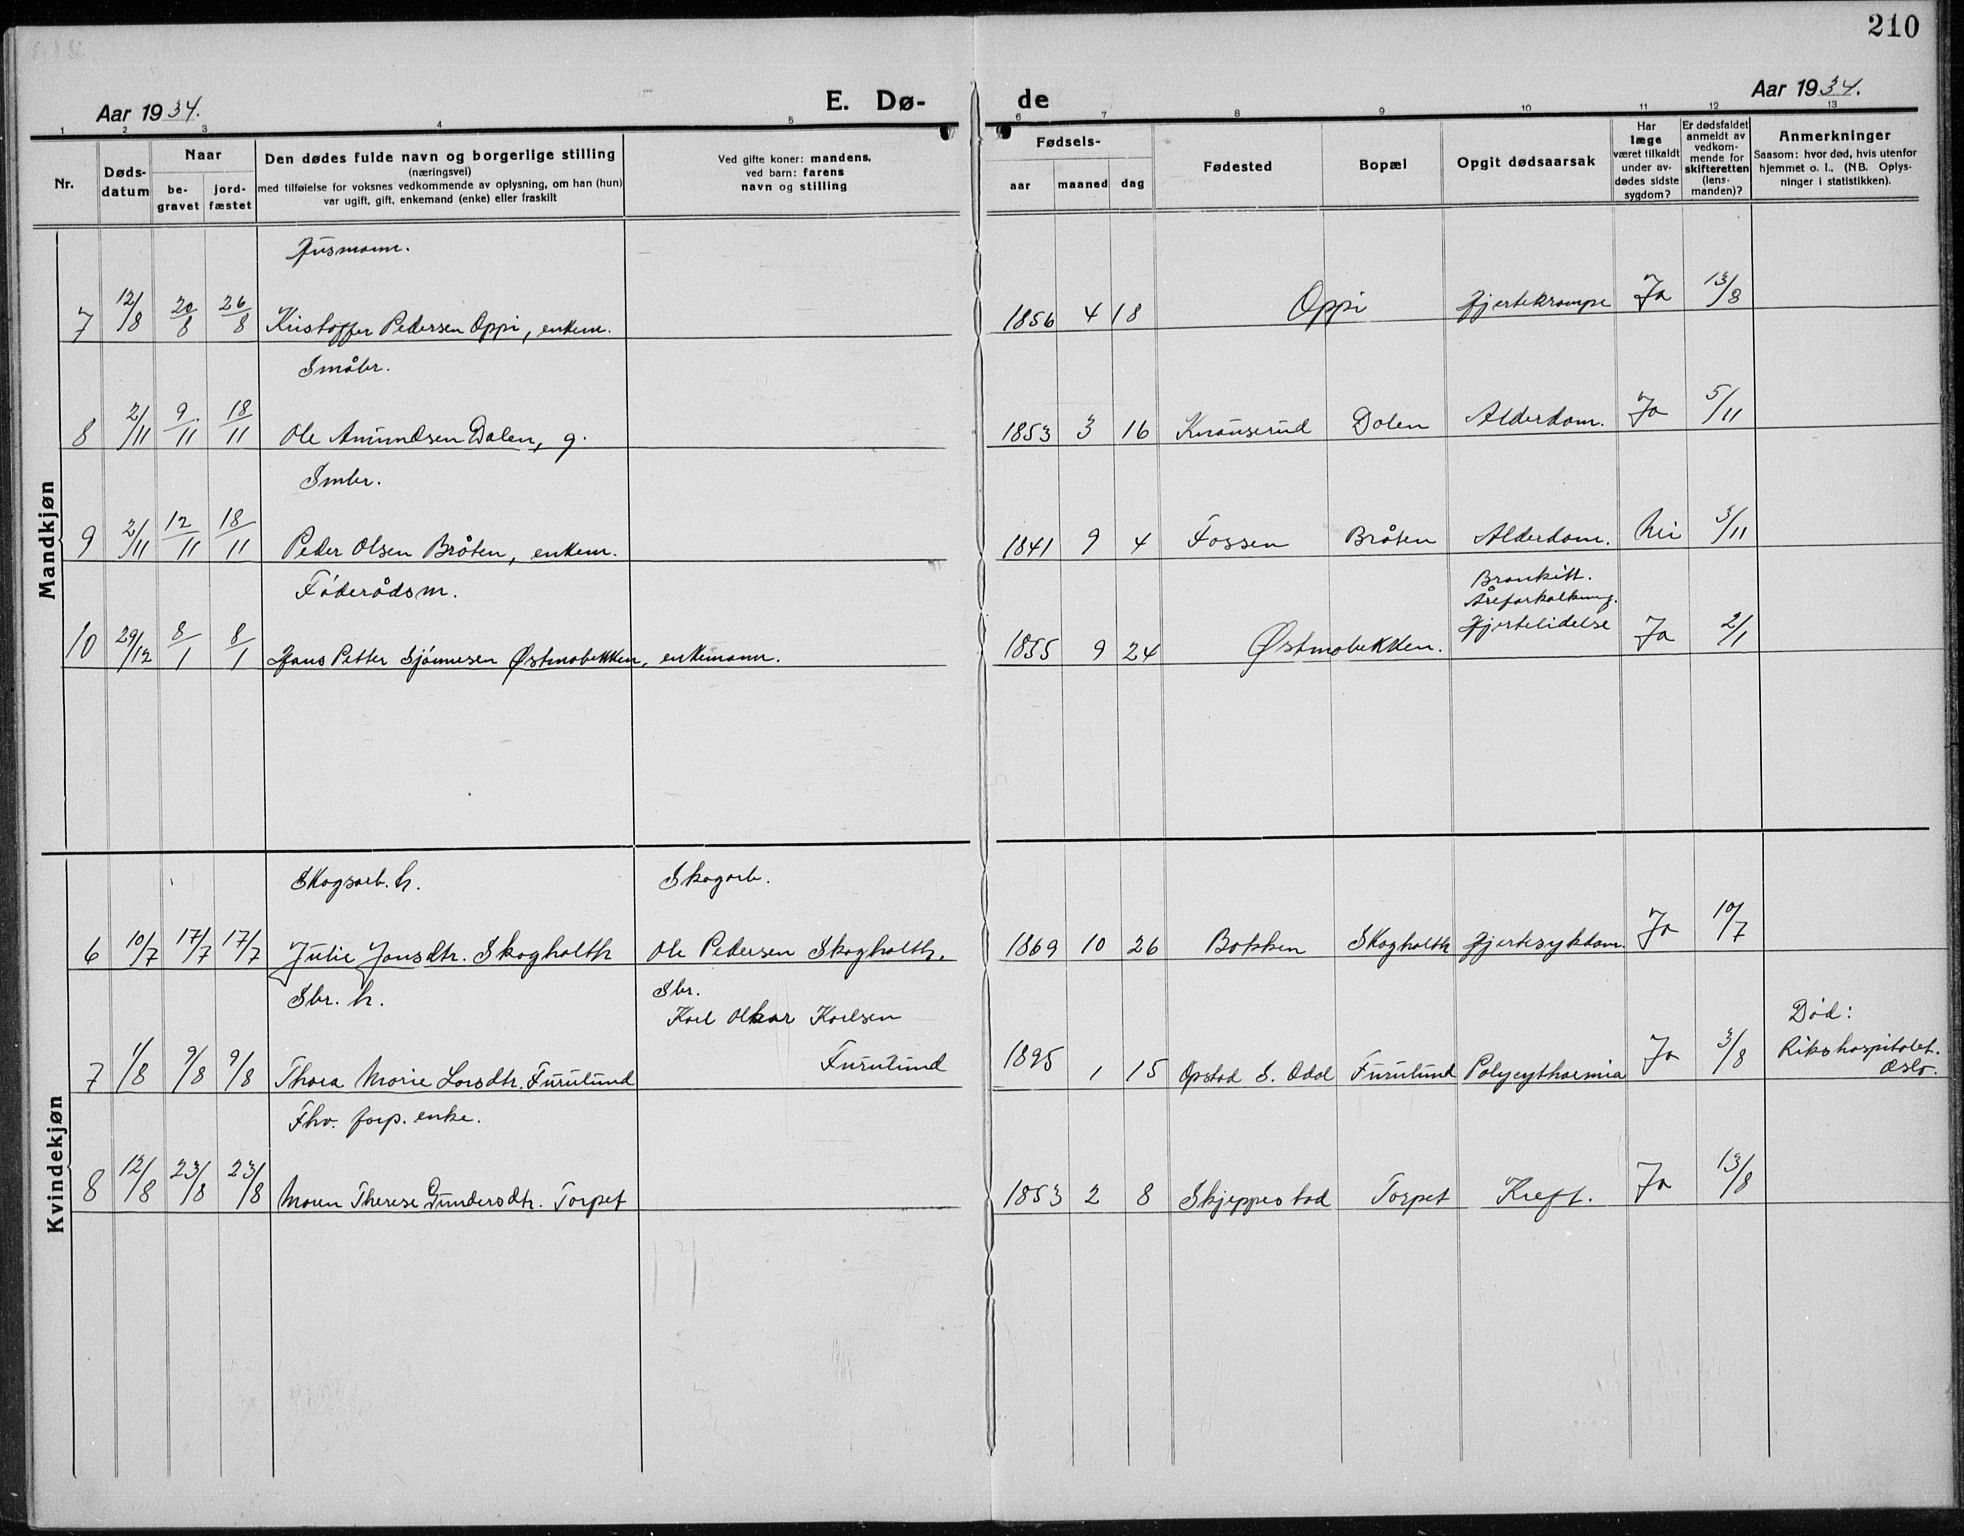 210
Aar 1934.
E. Dø-
de
Aar 1934.
1 2 3 4 5 6 7 8 9 10 11 12 13
Nr.
Døds-
datum
Naar
be-
gravet
jord-
fæstet
Den dødes fulde navn og borgerlige stilling
(næringsvei)
med tilføielse for voksnes vedkommende av oplysning, om han (hun)
var ugift, gift, enkemand (enke) eller fraskilt
Ved gifte koner: mandens,
ved barn: farens
navn og stilling
Fødsels-
aar maaned dag
Fødested
Bopæl
Opgit dødsaarsak
Har
læge
været tilkaldt
under av-
dødes sidste
sygdom?
Er dødsfaldet
anmeldt av
vedkom-
mende for
skifteretten
(lens-
manden)?
Anmerkninger
Saasom: hvor død, hvis utenfor
hjemmet o. l., (NB. Oplys-
ninger i statistikken).
Mandkjøn
Husmann.
7 12/8 20/8 26/8 Kristoffer Pedersen Oppi, enkem. 1856 4 18 Oppi Hjertekrampe Ja 13/8
Småbr.
8 2/11 9/11 18/11 Ole Amundsen Dalen, g. 1853 3 16 Knauserud Dalen Alderdom. Ja 5/11
Smbr.
9 2/11 12/11 18/11 Peder Olsen Bråten, enkem. 1841 9 4 Fossen Bråten Alderdom. Nei 3/11
Föderådsm.
Bronkitt.
Åreforkalkning.
Hjertelidelse
10 29/12 8/1 8/1 Hans Petter Sjönnesen Østmobekken, enkemann. 1855 9 24 Østmobekken. Ja 2/1
Kvindekjøn
Skogsarb. h. Skogarb.
6 10/7 17/7 17/7 Julie Jansdtr. Skogholth Ole Pedersen Skogholth. 1869 10 26 Bakken Skogholth Hjertesykdom. Ja 10/7
Sbr. h. Sbr.
Karl Oskar Karlsen
Furulund
Død:
Rikshospitalet.
Oslo.
7 1/8 9/8 9/8 Thora Marie Larsdtr. Furulund 1895 1 15 Opstad S. Odal Furulund Polycythaemia Ja 3/8
Fhv. forp. enke.
8 12/8 23/8 23/8 Maren Therese Gundersdtr. Torpet 1853 2 8 Skjeppestad Torpet Kreft. Ja 13/8